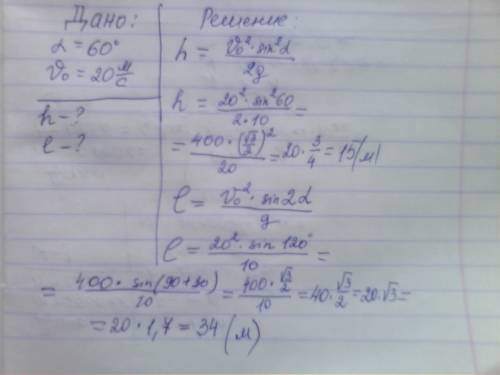 Дано:
α = 60°
v₀ = 20 м/с
h - ?
l - ?
Решение:
h = v₀² · sin²α / 2g
h = 20² · sin²60 / 2 · 10 =
= 400 · (√3/2)² / 20 = 20 · 3/4 = 15 (м)
l = v₀² · sin2α / g
l = 20² · sin 120° / 10 =
= 400 · sin(90+30) / 10 = 400 · √3/2 / 10 = 40 · √3/2 = 20 · √3 =
= 20 · 1,7 = 34 (м)